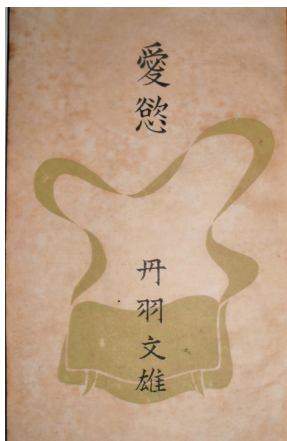 愛慾
丹羽文雄